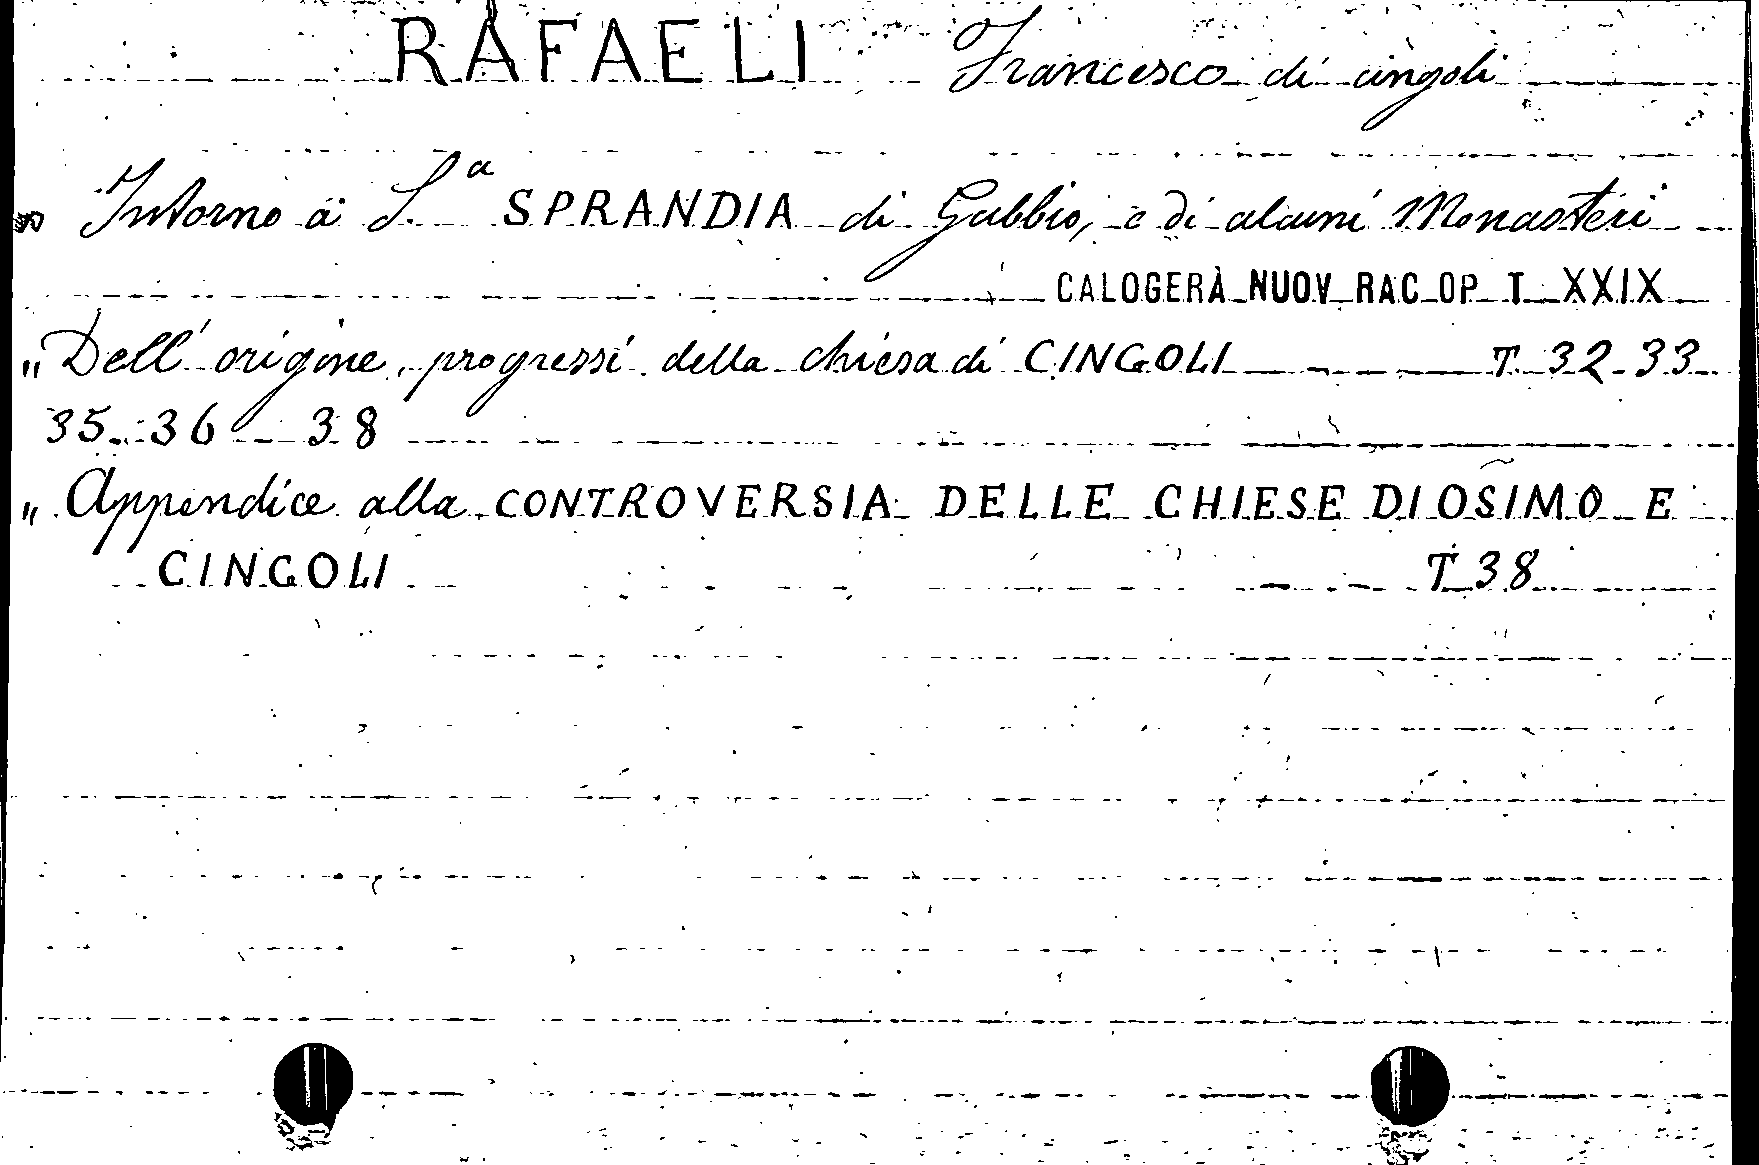 RAFAELI Francesco di cingoli
" Intorno a S.a SPRANDIA di Gubbio, e di alcuni Monasteri
CALOGERÀ NUOV RAC OP T XXIX
" Dell' origine, progressi della chiesa di CINGOLI T 32-33
35. 36 38
" Appendice alla CONTROVERSIA DELLE CHIESE DI OSIMO E
CINGOLI T 38